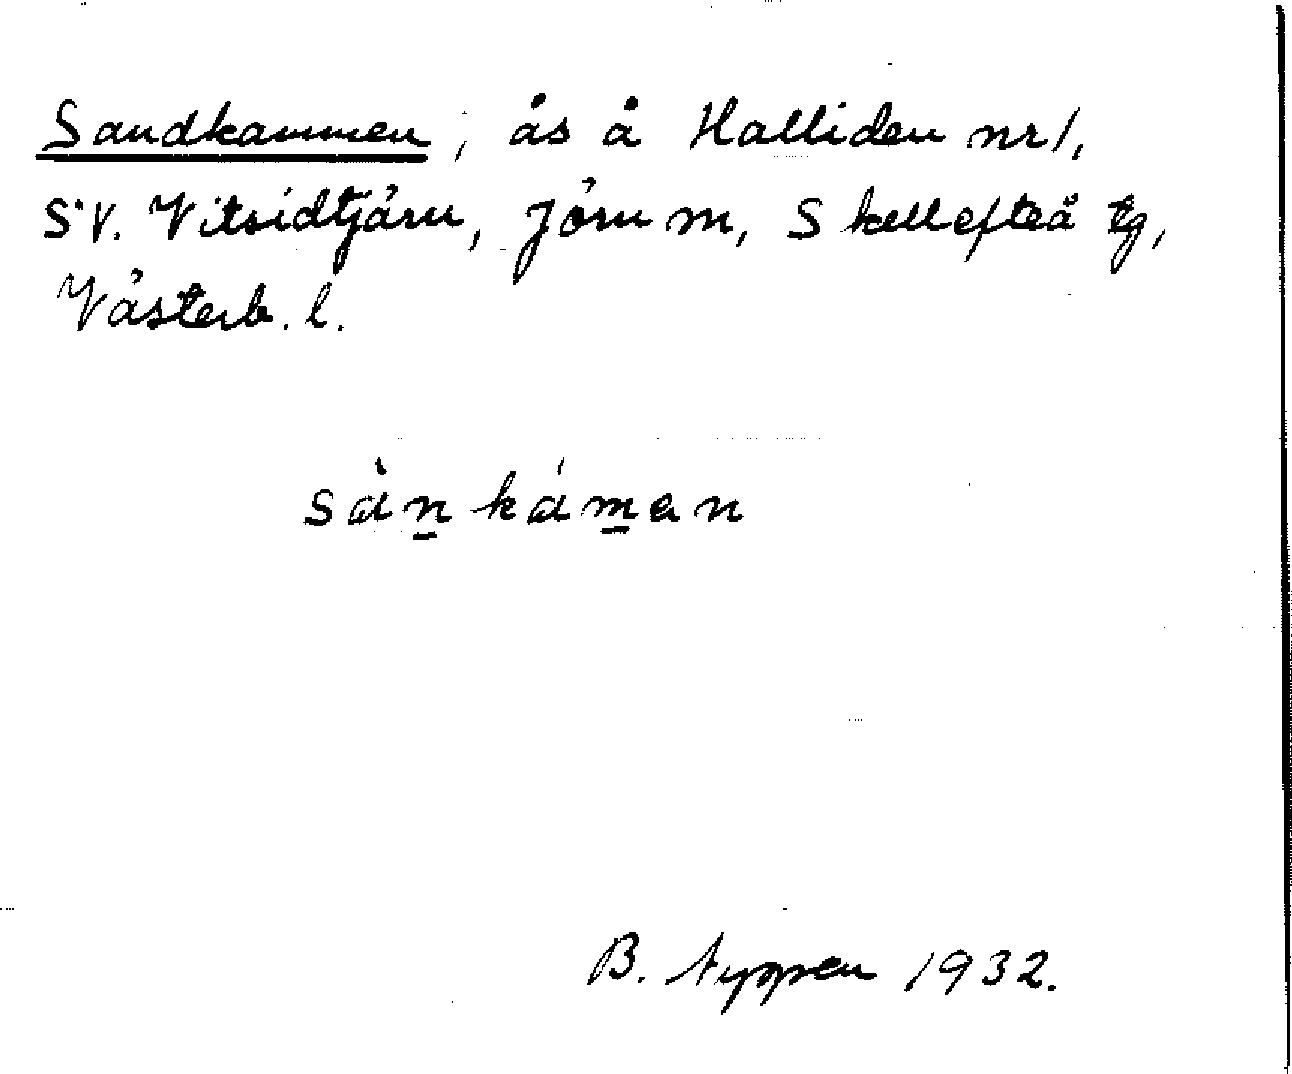 Sandkammen, ås å Halliden nr 1,
S.V. Vitsidtjärn, Jörn sn, Skellefteå tg,
Västerb. l.
sànkámen
B. Nyppen 1932.